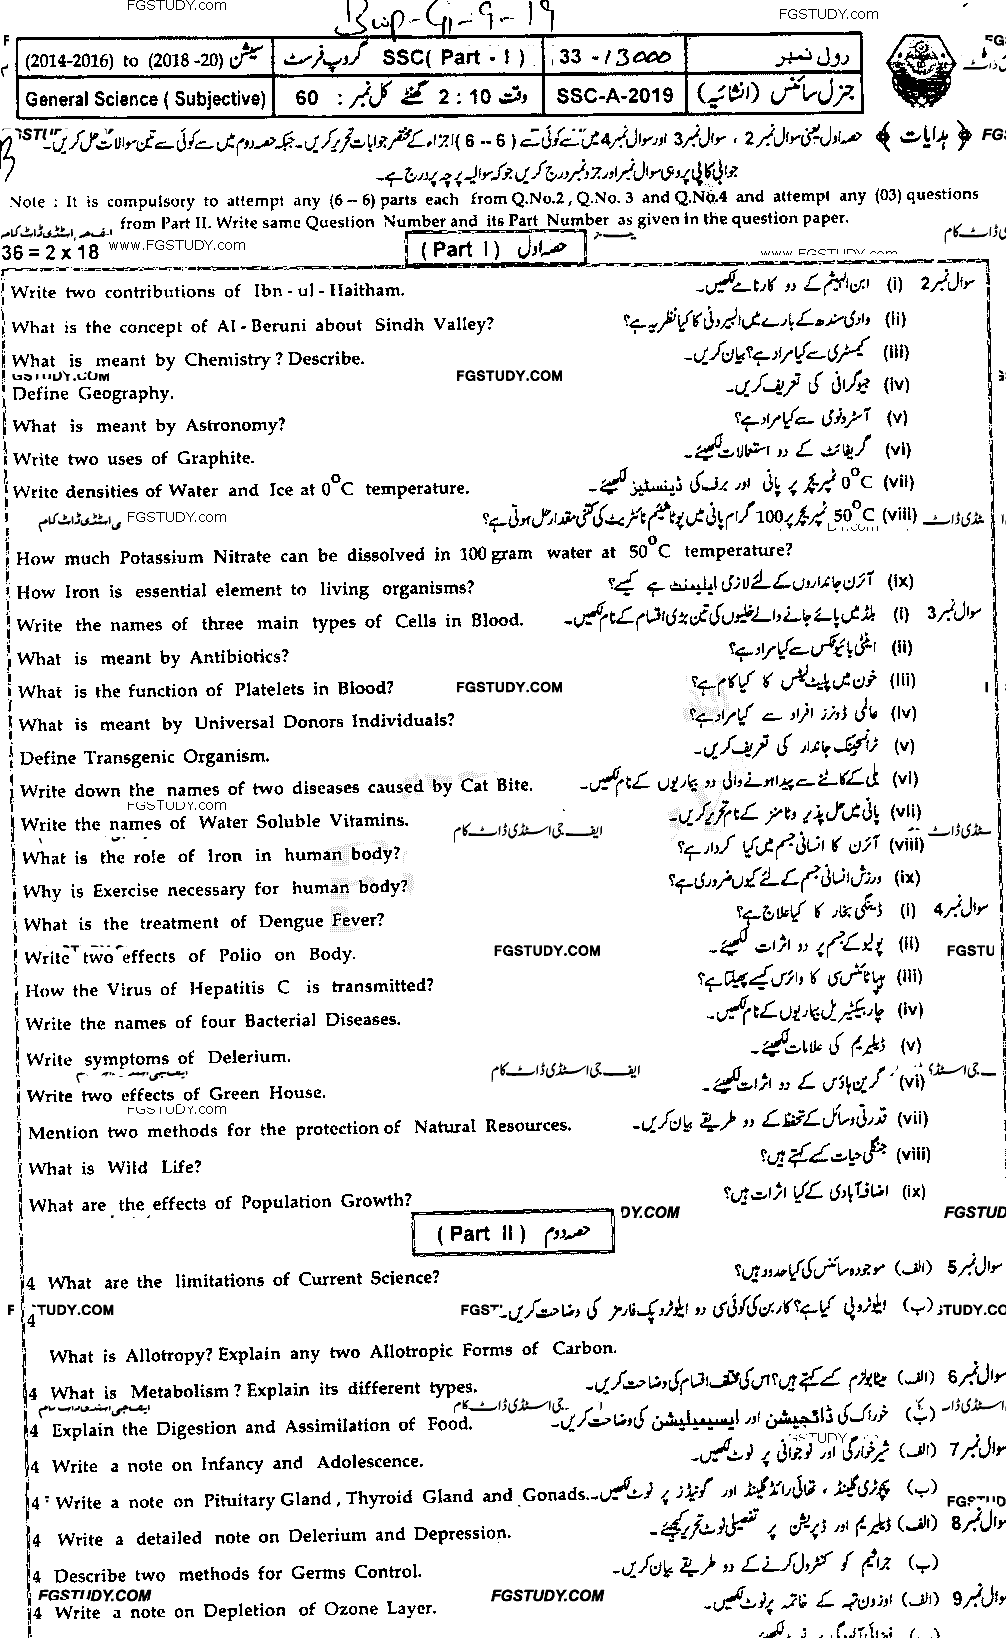 Bwp-G1-9-19
FGSTUDY.COM FGSTUDY.com
(2014-2016) to (2018-20) سیشن SSC( Part - I ) گروپ فرسٹ 33 - 13000 رول نمبر
General Science ( Subjective) وقت 2 : 10 گھنٹے کل نمبر : 60 SSC-A-2019 جنرل سائنس (انشائیہ)
﴿ ہدایات ﴾ حصہ اول یعنی سوال نمبر 2 ، سوال نمبر 3 اور سوال نمبر 4 میں سے کوئی سے ( 6 -- 6 ) اجزاء کے مختصر جوابات تحریر کریں۔ جبکہ حصہ دوم میں سے کوئی سے تین سوالات حل کریں۔
جوابی کاپی پر وہی سوال نمبر اور جز نمبر درج کریں جو کہ سوالیہ پرچہ پر درج ہے۔
Note : It is compulsory to attempt any (6 – 6) parts each from Q.No.2, Q.No. 3 and Q.No.4 and attempt any (03) questions
from Part II. Write same Question Number and its Part Number as given in the question paper.
36 = 2 x 18 www.FGSTUDY.com (Part I) حصہ اول
سوال نمبر 2 (i) ابن الہیثم کے دو کارنامے لکھیں۔
Write two contributions of Ibn - ul - Haitham.
(ii) وادی سندھ کے بارے میں البیرونی کا کیا نظریہ ہے؟
What is the concept of Al - Beruni about Sindh Valley?
(iii) کیمسٹری سے کیا مراد ہے؟ بیان کریں۔
What is meant by Chemistry ? Describe.
FGSTUDY.COM
(iv) جیوگرافی کی تعریف کریں۔
Define Geography.
(v) آسٹرونومی سے کیا مراد ہے؟
What is meant by Astronomy?
(vi) گریفائٹ کے دو استعمالات لکھیئے۔
Write two uses of Graphite.
(vii) 0°C ٹمپریچر پر پانی اور برف کی ڈینسٹیز لکھیئے۔
Write densities of Water and Ice at 0°C temperature.
(viii) 50°C ٹمپریچر پر 100 گرام پانی میں پوٹاشیم نائٹریٹ کی کتنی مقدار حل ہوتی ہے؟
FGSTUDY.com
How much Potassium Nitrate can be dissolved in 100 gram water at 50°C temperature?
(ix) آئرن جانداروں کے لئے لازمی ایلیمنٹ ہے کیسے؟
How Iron is essential element to living organisms?
سوال نمبر 3 (i) بلڈ میں پائے جانے والے خلیوں کی تین بڑی اقسام کے نام لکھیں۔
Write the names of three main types of Cells in Blood.
(ii) اینٹی بائیوٹکس سے کیا مراد ہے؟
What is meant by Antibiotics?
(iii) خون میں پلیٹ لیٹس کا کیا کام ہے؟
What is the function of Platelets in Blood? FGSTUDY.COM
(iv) عالمی ڈونرز افراد سے کیا مراد ہے؟
What is meant by Universal Donors Individuals?
(v) ٹرانسجینک جاندار کی تعریف کریں۔
Define Transgenic Organism.
(vi) بلی کے کاٹنے سے پیدا ہونے والی دو بیماریوں کے نام لکھیں۔
Write down the names of two diseases caused by Cat Bite.
FGSTUDY.com
(vii) پانی میں حل پذیر وٹامنز کے نام تحریر کریں۔
Write the names of Water Soluble Vitamins. ایف جی اسٹڈی ڈاٹ کام
(viii) آئرن کا انسانی جسم میں کیا کردار ہے؟
What is the role of Iron in human body?
(ix) ورزش انسانی جسم کے لئے کیوں ضروری ہے؟
Why is Exercise necessary for human body?
سوال نمبر 4 (i) ڈینگی بخار کا کیا علاج ہے؟
What is the treatment of Dengue Fever?
(ii) پولیو کے جسم پر دو اثرات لکھیئے۔
Write two effects of Polio on Body. FGSTUDY.COM FGSTU
(iii) ہیپاٹائٹس سی کا وائرس کیسے پھیلتا ہے؟
How the Virus of Hepatitis C is transmitted?
(iv) چار بیکٹیریل بیماریوں کے نام لکھیں۔
Write the names of four Bacterial Diseases.
(v) ڈیلیریم کی علامات لکھیئے۔
Write symptoms of Delerium. ایف جی اسٹڈی ڈاٹ کام
(vi) گرین ہاؤس کے دو اثرات لکھیئے۔
Write two effects of Green House.
FGSTUDY.com
(vii) قدرتی وسائل کے تحفظ کے دو طریقے بیان کریں۔
Mention two methods for the protection of Natural Resources.
(viii) جنگلی حیات کسے کہتے ہیں؟
What is Wild Life?
(ix) اضافہ آبادی کے کیا اثرات ہیں؟
What are the effects of Population Growth?
DY.COM FGSTUD
(Part II) حصہ دوم
سوال نمبر 5 (الف) موجودہ سائنس کی کیا حدود ہیں؟
4 What are the limitations of Current Science?
(ب) ایلوٹروپی کیا ہے؟ کاربن کی کوئی سی دو ایلوٹروپک فارمز کی وضاحت کریں۔
4
What is Allotropy? Explain any two Allotropic Forms of Carbon.
سوال نمبر 6 (الف) میٹابولزم کسے کہتے ہیں؟ اس کی مختلف اقسام کی وضاحت کریں۔
4 What is Metabolism ? Explain its different types.
(ب) خوراک کی ڈائجیشن اور ایسیمیلیشن کی وضاحت کریں۔
4 Explain the Digestion and Assimilation of Food.
سوال نمبر 7 (الف) شیر خوارگی اور نوجوانی پر نوٹ لکھیں۔
4 Write a note on Infancy and Adolescence.
(ب) پچوٹری گلینڈ ، تھائی رائڈ گلینڈ اور گونیڈز پر نوٹ لکھیں۔
4 Write a note on Pituitary Gland , Thyroid Gland and Gonads.
سوال نمبر 8 (الف) ڈیلیریم اور ڈپریشن پر تفصیلی نوٹ تحریر کیجئے۔
4 Write a detailed note on Delerium and Depression.
(ب) جراثیم کو کنٹرول کرنے کے دو طریقے بیان کریں۔
4 Describe two methods for Germs Control.
FGSTUDY.COM FGSTUDY.COM
سوال نمبر 9 (الف) اوزون تہہ کے خاتمہ پر نوٹ لکھیں۔
4 Write a note on Depletion of Ozone Layer.